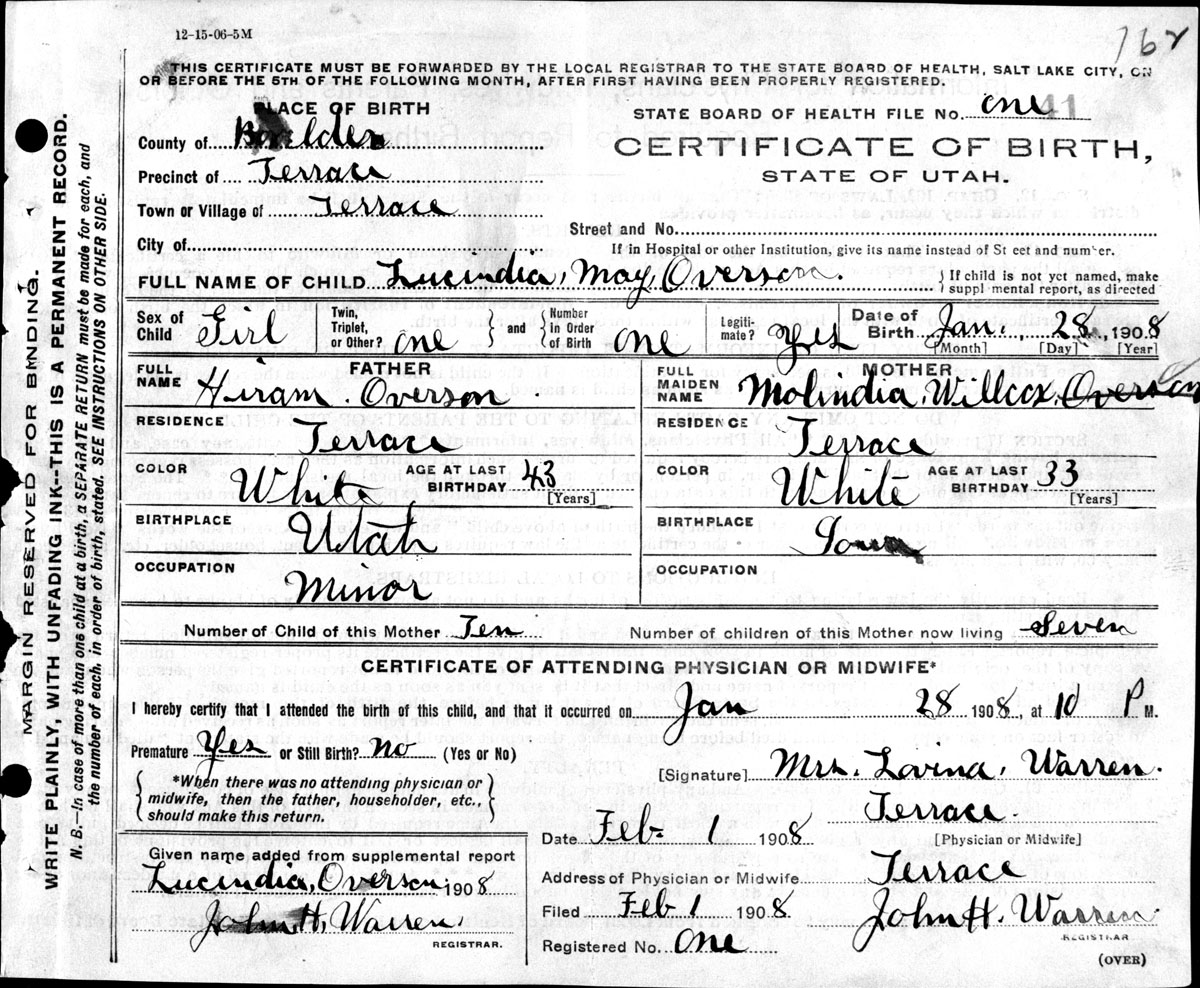 12-15-06-5M
162
THIS CERTIFICATE MUST BE FORWARDED BY THE LOCAL REGISTRAR TO THE STATE BOARD OF HEALTH, SALT LAKE CITY, ON
OR BEFORE THE 5TH OF THE FOLLOWING MONTH, AFTER FIRST HAVING BEEN PROPERLY REGISTERED.
PLACE OF BIRTH
STATE BOARD OF HEALTH FILE No. one 41
County of
CERTIFICATE OF BIRTH,
Precinct of Terrace
STATE OF UTAH.
Town or Village of Terrace
Street and No.
City of
If in Hospital or other Institution, give its name instead of St eet and number.
FULL NAME OF CHILD Lucindia, May, Overson. } If child is not yet named, make
suppl mental report, as directed
Sex of Child Girl Twin, Triplet, or Other? one } and { Number in Order of Birth one Legiti-mate? yes Date of Birth Jan. 28, 1908
[Month] [Day] [Year]
FULL NAME FATHER Hiram. Overson.
FULL MAIDEN NAME MOTHER Molindia, Willcox, Overson
RESIDENCE Terrace
RESIDENCE Terrace
COLOR White AGE AT LAST BIRTHDAY 43 [Years]
COLOR White AGE AT LAST BIRTHDAY 33 [Years]
BIRTHPLACE Utah
BIRTHPLACE
OCCUPATION Minor
OCCUPATION
Number of Child of this Mother Ten
Number of children of this Mother now living Seven
CERTIFICATE OF ATTENDING PHYSICIAN OR MIDWIFE*
I hereby certify that I attended the birth of this child, and that it occurred on Jan 28 1908, at 10 P M.
Premature Yes or Still Birth? no (Yes or No)
{ *When there was no attending physician or
midwife, then the father, householder, etc.,
should make this return. }
[Signature] Mrs. Lovina, Warren.
Terrace.
Date Feb- 1 1908
[Physician or Midwife]
Address of Physician or Midwife Terrace
Filed Feb 1 1908 John H. Warren
REGISTRAR
Registered No. one
(OVER)
Given name added from supplemental report
Lucindia, Overson 1908
John H. Warren.
REGISTRAR.
MARGIN RESERVED FOR BINDING.
WRITE PLAINLY, WITH UNFADING INK--THIS IS A PERMANENT RECORD.
N. B.—In case of more than one child at a birth, a SEPARATE RETURN must be made for each, and
the number of each, in order of birth, stated. SEE INSTRUCTIONS ON OTHER SIDE.